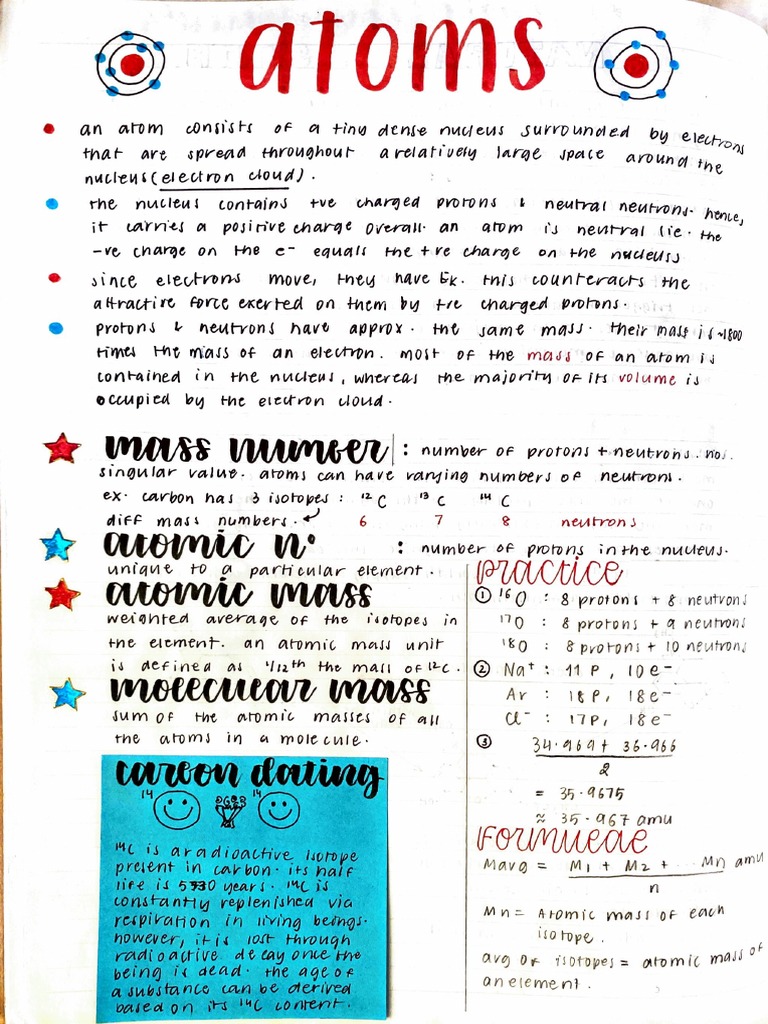 atoms
an atom consists of a tiny dense nucleus surrounded by electrons
that are spread throughout a relatively large space around the
nucleus (electron cloud).
the nucleus contains +ve charged protons & neutral neutrons. hence,
it carries a positive charge overall. an atom is neutral i.e. the
-ve charge on the e⁻ equals the +ve charge on the nucleus
since electrons move, they have Ek. this counteracts the
attractive force exerted on them by +ve charged protons.
protons & neutrons have approx. the same mass. their mass is ~1800
times the mass of an electron. most of the mass of an atom is
contained in the nucleus, whereas the majority of its volume is
occupied by the electron cloud.
mass number : number of protons + neutrons. no.
singular value. atoms can have varying numbers of neutrons.
ex. carbon has 3 isotopes : ¹²C ¹³C ¹⁴C
diff mass numbers. 6 7 8 neutrons
atomic n° : number of protons in the nucleus.
unique to a particular element.
atomic mass
weighted average of the isotopes in
the element. an atomic mass unit
is defined as 1/12th the mass of ¹²C.
molecular mass
sum of the atomic masses of all
the atoms in a molecule.
carbon dating
14 14
¹⁴C is a radioactive isotope
present in carbon. its half
life is 5730 years. ¹⁴C is
constantly replenished via
respiration in living beings.
however, it is lost through
radioactive decay once the
being is dead. the age of
a substance can be derived
based on its ¹⁴C content.
practice
① ¹⁶O : 8 protons + 8 neutrons
¹⁷O : 8 protons + 9 neutrons
¹⁸O : 8 protons + 10 neutrons
② Na⁺ : 11 p, 10 e⁻
Ar : 18 p, 18 e⁻
Cl⁻ : 17 p, 18 e⁻
③ 34.969 + 36.966
2
= 35.9675
≈ 35.967 amu
Formulae
Mavg = M₁ + M₂ + ... Mn amu
n
Mn = Atomic mass of each
isotope.
avg of isotopes = atomic mass of
an element.